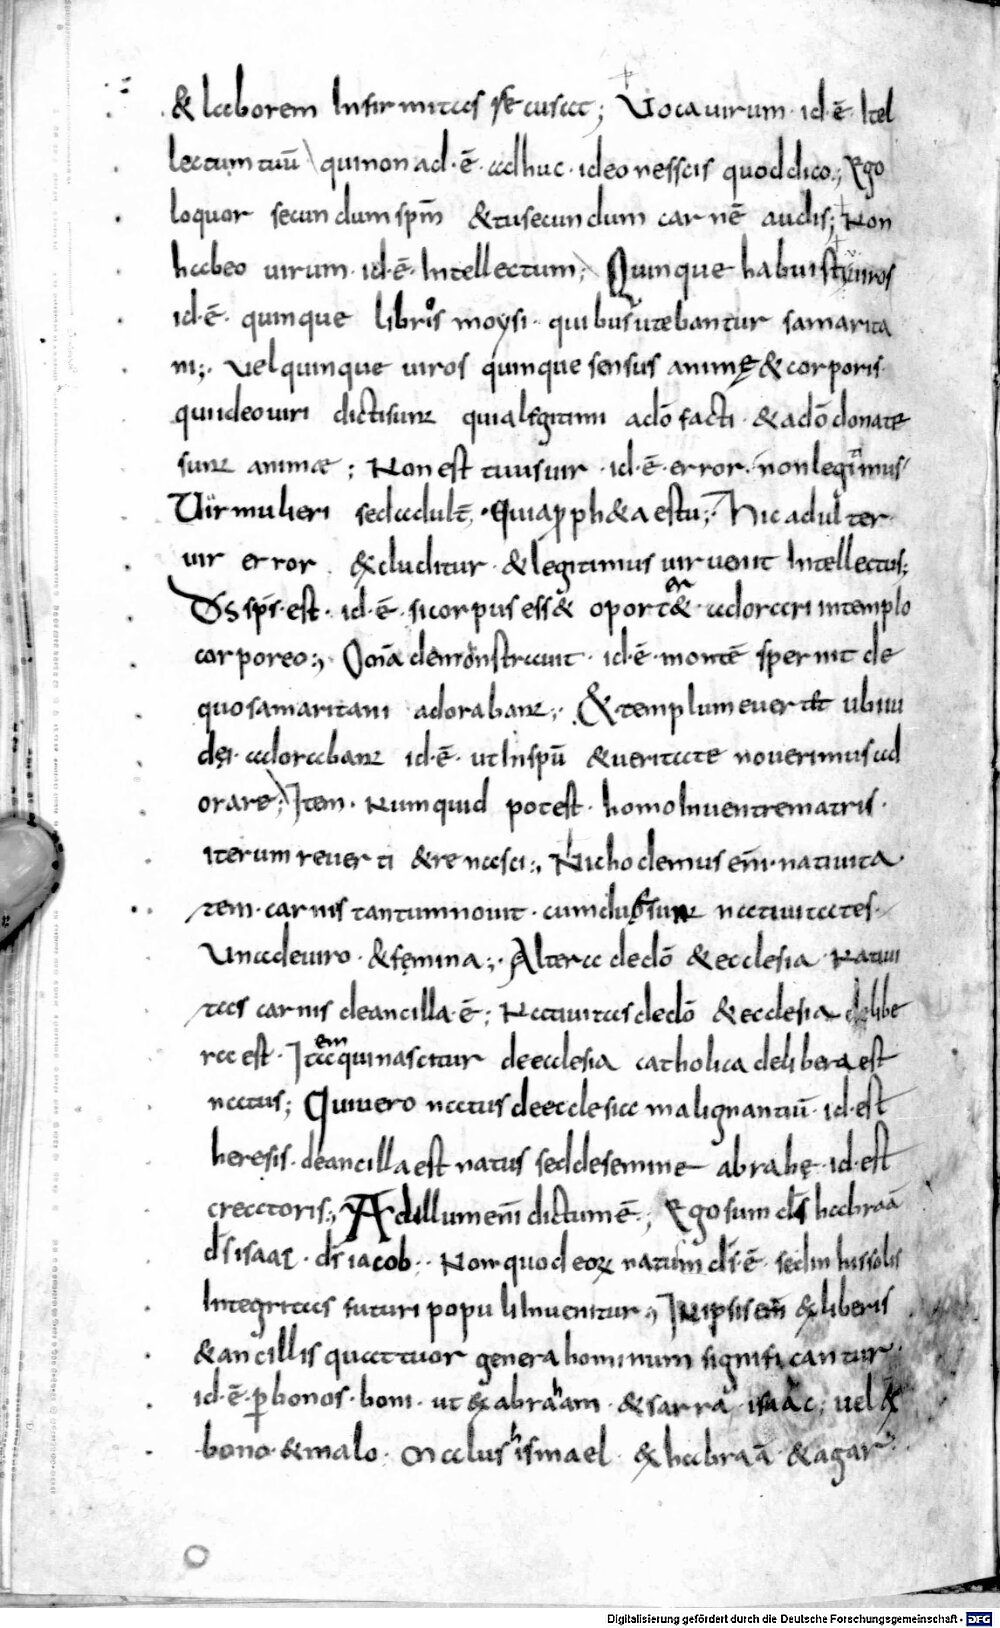 & laborem Infirmitas recusat; Uoca uirum· id·ē· Itel
lectum tuū quinon ad·ē· adhuc· ideo nesscis quoddico·; Ego
loquor secundum spm̄ & tu secundum carnē audis; Non
habeo uirum· id·ē· Intellectum; Quinque habuisti uiros
id·ē· quinque libros moysi· quibus utebantur samarita
ni;· uel quinque uiros quinque sensus animę & corporis·
quiideo uiri dicti sunt quia legitimi adō facti· & adō donate
sunt animæ; Non est tuus uir· id·ē· error· non legitimus
Uir mulieri sed adult̄· Quia ꝓph&a es tu;· hic adulter
uir error excluditur· & legitimus uir uenit Intellectus;
Ds̄ sp̄s· est· id·ē· si corpus ess& oporter& adorari in templo
corporeo;, Om̄a demonstrauit· id·ē· montē spernit de
quo samaritani adorabant;· & templum euertit ubi iu
dęi· adorabant id·ē· ut In spū & ueritate nouerimus ad
orare; Item· Numquid potest· homo In uentre matris·
iterum reuerti & renasci;, Nichodemus em̄· natiuita
tem· carnis tantum nouit· cum duę sunt natiuitates·
Una deuiro· & fęmina;· Altera dedō & ecclesia Natiui
tas carnis deancilla·ē·; Natiuitas dedō & ecclesia delibe
ra est· Itaem qui nascitur deecclesia catholica delibera est
natus; Qui uero natus deecclesia malignantiū· id·est
heresis· deancilla est natus sed desemine abrahę· id·est
creatoris;, Ad illum em̄ dictum·ē·; Ego sum ds̄ habraā
ds̄ isaac· ds̄ iacob·· Non quod eoꝝ natum ds̄·ē· sed in his solis
Integritas futuri populi Inuenitur;, In ipsis em̄ ex liberis
& ancillis quattuor genera hominum significantur·
id·ē· ꝑ bonos· boni· ut ex abraham· & sarra· isaac; uel ex
bono· & malo· malus hismael· ex habraā & agar·
Digitalisierung gefördert durch die Deutsche Forschungsgemeinschaft - DFG